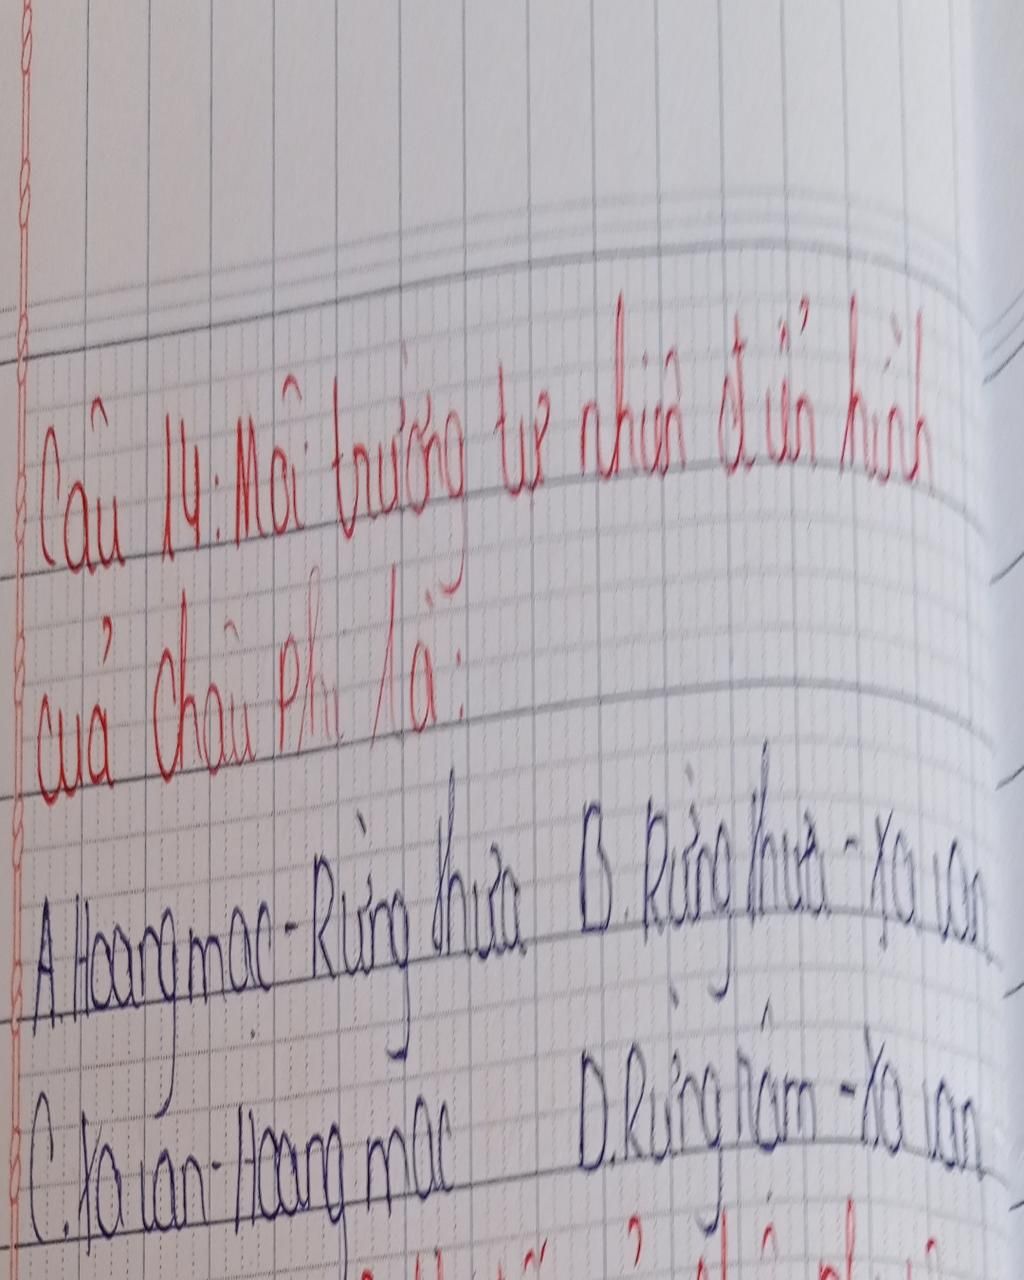 Câu 14: Môi trường tự nhiên điển hình
của Châu Phi là:
A. Hoang mạc - Rừng thưa B. Rừng thưa - Xa van
C. Xa van - Hoang mạc D. Rừng rậm - Xa van